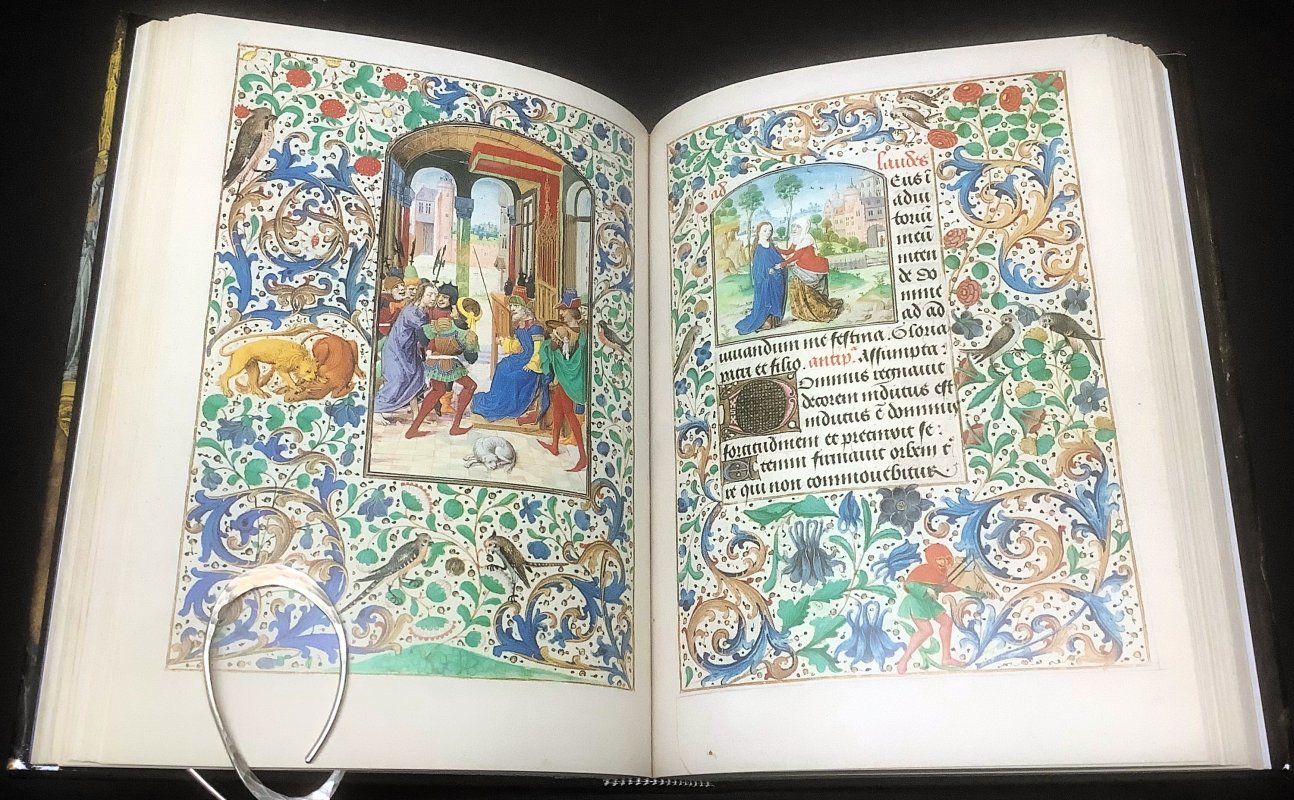 ad laudes
Eus ĩ
adiut
toriũ
meũ
inten
de do
mine
ad ad
iuuandum me festina. Gloria
patri et filio. antip̃. Assumpta.
Dominus regnauit
decorem indutus est
indutus ẽ dominus
fortitudinem et precinxit se:
Etenim firmauit orbem t̃
re qui non commouebitur